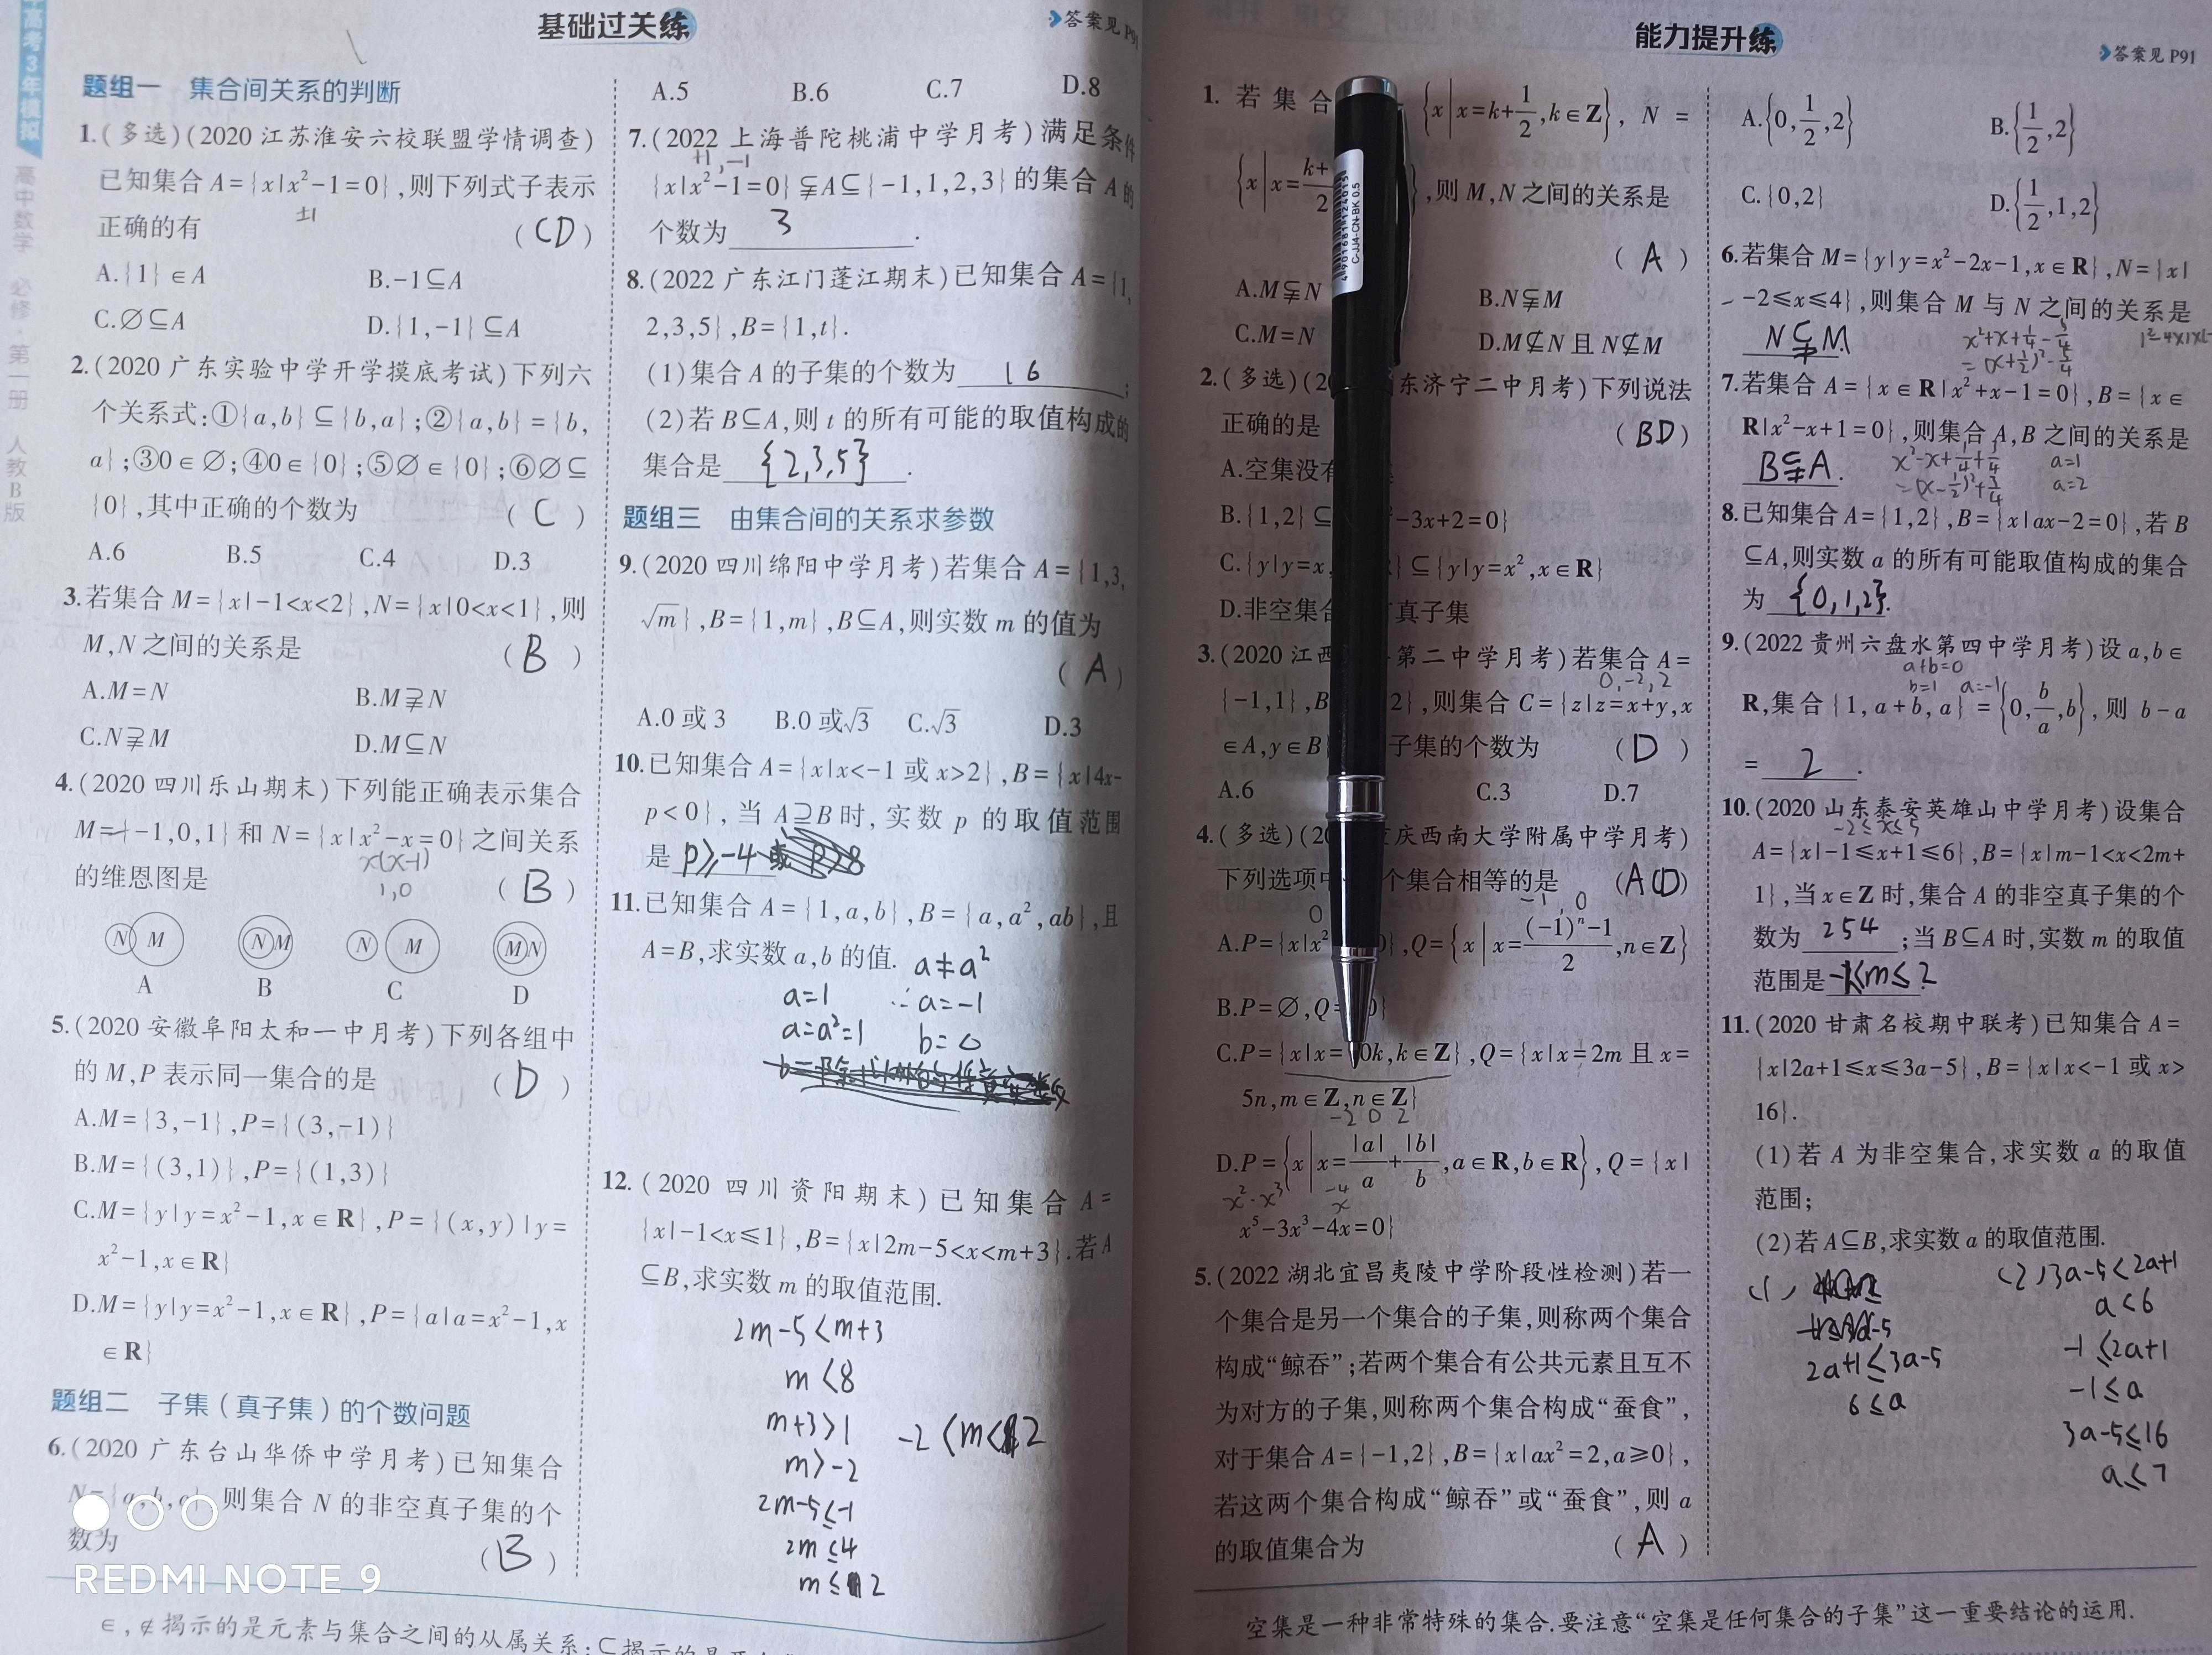 高考3年模拟 高中数学 必修·第一册 人教B版
基础过关练
答案见 P91
题组一 集合间关系的判断
1.(多选)(2020江苏淮安六校联盟学情调查)
已知集合A={x|x²-1=0},则下列式子表示
±1
正确的有 (CD)
A.{1}∈A B.-1⊆A
C.∅⊆A D.{1,-1}⊆A
2.(2020广东实验中学开学摸底考试)下列六
个关系式:①{a,b}⊆{b,a};②{a,b}={b,
a};③0∈∅;④0∈{0};⑤∅∈{0};⑥∅⊆
{0},其中正确的个数为 (C)
A.6 B.5 C.4 D.3
3.若集合M={x|-1<x<2},N={x|0<x<1},则
M,N之间的关系是 (B)
A.M=N B.M⫌N
C.N⫌M D.M⊆N
4.(2020四川乐山期末)下列能正确表示集合
M={-1,0,1}和N={x|x²-x=0}之间关系
x(x-1)
的维恩图是 (B)
1,0
N M N M N M M N
A B C D
5.(2020安徽阜阳太和一中月考)下列各组中
的M,P表示同一集合的是 (D)
A.M={3,-1},P={(3,-1)}
B.M={(3,1)},P={(1,3)}
C.M={y|y=x²-1,x∈R},P={(x,y)|y=
x²-1,x∈R}
D.M={y|y=x²-1,x∈R},P={a|a=x²-1,x
∈R}
题组二 子集(真子集)的个数问题
6.(2020广东台山华侨中学月考)已知集合
则集合N的非空真子集的个
数为 (B)
REDMI NOTE 9
∈,∉揭示的是元素与集合之间的从属关系;
A.5 B.6 C.7 D.8
7.(2022上海普陀桃浦中学月考)满足条件
+1,-1
{x|x²-1=0}⫋A⊆{-1,1,2,3}的集合A的
个数为 3 .
8.(2022广东江门蓬江期末)已知集合A={1,
2,3,5},B={1,t}.
(1)集合A的子集的个数为 16 ;
(2)若B⊆A,则t的所有可能的取值构成的
集合是 {2,3,5} .
题组三 由集合间的关系求参数
9.(2020四川绵阳中学月考)若集合A={1,3,
√m},B={1,m},B⊆A,则实数m的值为
(A)
A.0或3 B.0或√3 C.√3 D.3
10.已知集合A={x|x<-1或x>2},B={x|4x-
p<0},当A⊇B时,实数p的取值范围
是 p≥-4
11.已知集合A={1,a,b},B={a,a²,ab},且
A=B,求实数a,b的值. a≠a²
a=1 ∴a=-1
a=a²=1 b=0
12.(2020四川资阳期末)已知集合A=
{x|-1<x≤1},B={x|2m-5<x<m+3}.若A
⊆B,求实数m的取值范围.
2m-5<m+3
m<8
m+3>1
-2<m<2
m>-2
2m-5≤-1
2m≤4
m≤2
能力提升练
答案见 P91
1.若集合 {x|x=k+1/2,k∈Z},N=
{x|x=k+ 2 ,则M,N之间的关系是
(A)
A.M⫋N B.N⫋M
C.M=N D.M⊈N且N⊈M
2.(多选)(20 东济宁二中月考)下列说法
正确的是 (BD)
A.空集没有
B.{1,2}⊆ -3x+2=0}
C.{y|y=x, }⊆{y|y=x²,x∈R}
D.非空集合 真子集
3.(2020江西 第二中学月考)若集合A=
0,-2,2
{-1,1},B 2},则集合C={z|z=x+y,x
∈A,y∈B 子集的个数为 (D)
A.6 C.3 D.7
4.(多选)(20 庆西南大学附属中学月考)
下列选项中 个集合相等的是 (ACD)
0 -1,0
A.P={x|x² },Q={x|x=((-1)ⁿ-1)/2,n∈Z}
B.P=∅,Q= }
C.P={x|x= 0k,k∈Z},Q={x|x=2m且x=
5n,m∈Z,n∈Z}
-2 0 2
D.P={x|x=|a|/a+|b|/b,a∈R,b∈R},Q={x|
x²·x³ -4 x
x⁵-3x³-4x=0}
5.(2022湖北宜昌夷陵中学阶段性检测)若一
个集合是另一个集合的子集,则称两个集合
构成“鲸吞”;若两个集合有公共元素且互不
为对方的子集,则称两个集合构成“蚕食”,
对于集合A={-1,2},B={x|ax²=2,a≥0},
若这两个集合构成“鲸吞”或“蚕食”,则a
的取值集合为 (A)
A.{0,1/2,2} B.{1/2,2}
C.{0,2} D.{1/2,1,2}
6.若集合M={y|y=x²-2x-1,x∈R},N={x|
-2≤x≤4},则集合M与N之间的关系是
N⫋M x²+x+1/4-5/4
=(x+1/2)²-5/4
7.若集合A={x∈R|x²+x-1=0},B={x∈
R|x²-x+1=0},则集合A,B之间的关系是
B⫋A. x²-x+1/4+3/4 a=1
=(x-1/2)²+3/4 a=2
8.已知集合A={1,2},B={x|ax-2=0},若B
⊆A,则实数a的所有可能取值构成的集合
为 {0,1,2}.
9.(2022贵州六盘水第四中学月考)设a,b∈
a+b=0
b=1 a=-1
R,集合{1,a+b,a}={0,b/a,b},则b-a
= 2 .
10.(2020山东泰安英雄山中学月考)设集合
-2≤x≤5
A={x|-1≤x+1≤6},B={x|m-1<x<2m+
1},当x∈Z时,集合A的非空真子集的个
数为 254 ;当B⊆A时,实数m的取值
范围是 -1≤m≤2
11.(2020甘肃名校期中联考)已知集合A=
{x|2a+1≤x≤3a-5},B={x|x<-1或x>
16}.
(1)若A为非空集合,求实数a的取值
范围;
(2)若A⊆B,求实数a的取值范围.
(1) (2)3a-5<2a+1
a<6
2a+1≤3a-5 -1≤2a+1
6≤a -1≤a
3a-5≤16
a≤7
空集是一种非常特殊的集合.要注意“空集是任何集合的子集”这一重要结论的运用.